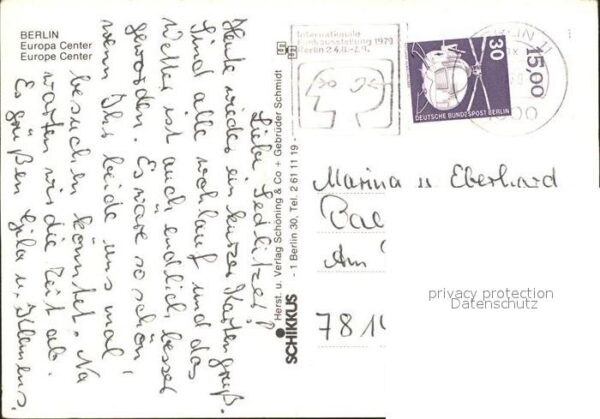 BERLIN
Europa Center
Europe Center
Liebe Sedlitzer!
Heute wieder ein kurzer Kartengruß.
Sind alle wohlauf und das
Wetter ist auch endlich besser
geworden. Es wäre so schön
wenn Ihr beide uns mal
besuchen könntet. Na
warten wir die Zeit ab.
Es grüßen Gila u. Klemens.
SCHIKKUS
Herst. u. Verlag Schöning & Co + Gebrüder Schmidt
-1 Berlin 30, Tel. 2 61 11 19 -
Internationale
Funkausstellung 1979
Berlin 24.8.-2.9.
30
DEUTSCHE BUNDESPOST BERLIN
BERLIN 11
1500
Marina u. Eberhard
Am
7814
privacy protection
Datenschutz